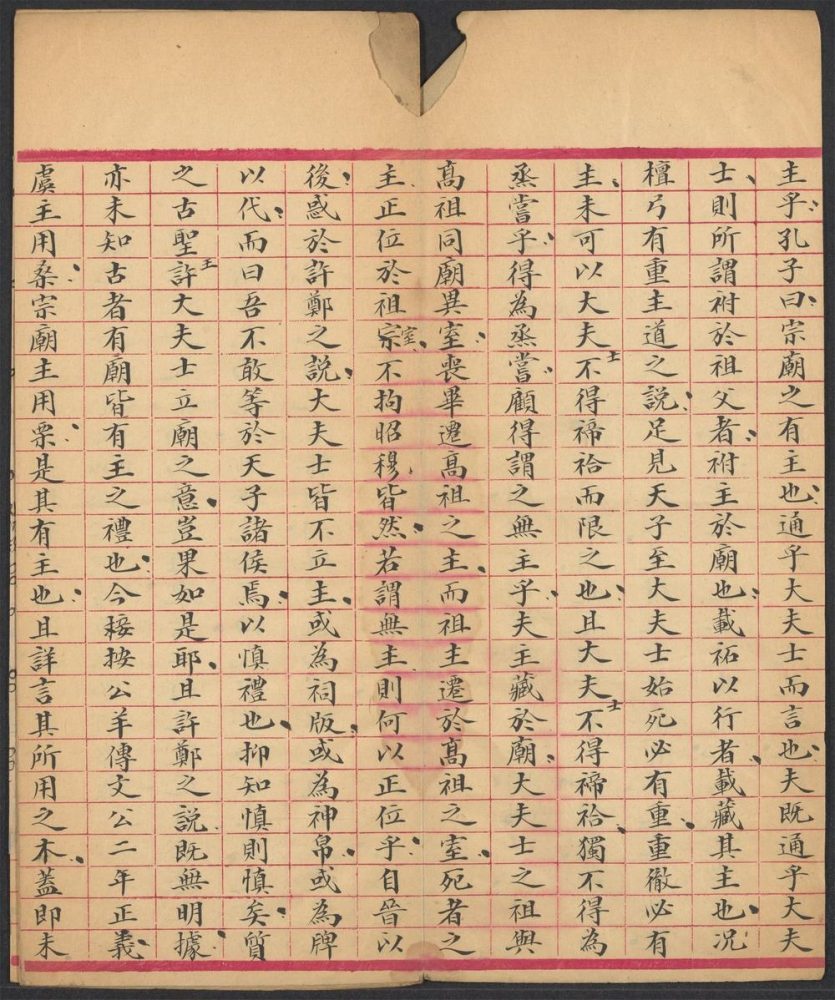 主乎孔子曰宗廟之有主也通乎大夫士而言也夫既通乎大夫
士則所謂祔於祖父者祔主於廟也載祏以行者載藏其主也况
檀弓有重主道之説足見天子至大夫士始死必有重重徹必有
主未可以大夫士不得禘祫而限之也且大夫士不得禘祫獨不得為
烝嘗乎得為烝嘗顧得謂之無主乎夫主藏於廟大夫士之祖與
高祖同廟異室喪畢遷高祖之主而祖主遷於高祖之室死者之
主正位於祖宗室不拘昭穆皆然若謂無主則何以正位乎自晉以
後惑於許鄭之説大夫士皆不立主或為祠版或為神帛或為牌
以代而曰吾不敢等於天子諸侯焉以慎禮也抑知慎則慎矣質
之古聖王許大夫士立廟之意豈果如是耶且許鄭之説既無明據
亦未知古者有廟皆有主之禮也今按按公羊傳文公二年正義
虞主用桑宗廟主用栗是其有主也且詳言其所用之木蓋即未